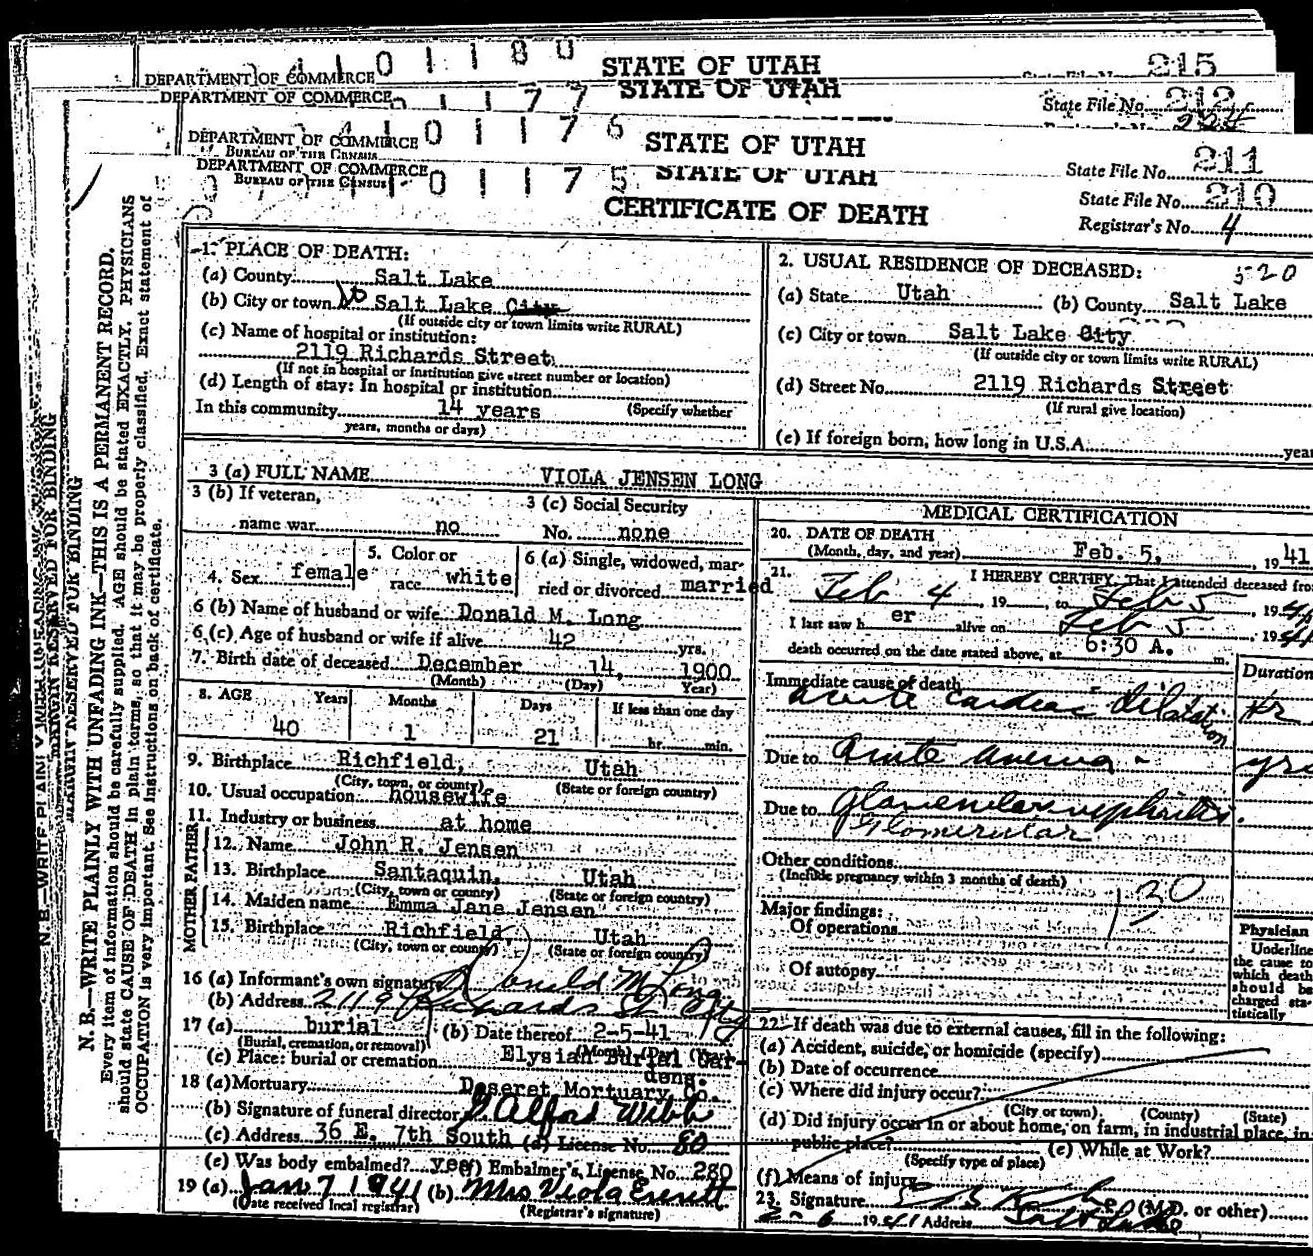 0 1 1 8 0
STATE OF UTAH
215
DEPARTMENT OF COMMERCE
1 1 7 7
STATE OF UTAH
State File No. 212
DEPARTMENT OF COMMERCE
4 1 0 1 1 7 6
STATE OF UTAH
State File No. 211
DEPARTMENT OF COMMERCE
BUREAU OF THE CENSUS
DEPARTMENT OF COMMERCE
BUREAU OF THE CENSUS
0 1 1 7 5
STATE OF UTAH
State File No. 210
CERTIFICATE OF DEATH
Registrar's No. 4
MARGIN RESERVED FOR BINDING
N. B.—WRITE PLAINLY WITH UNFADING INK—THIS IS A PERMANENT RECORD.
Every item of information should be carefully supplied. AGE should be stated EXACTLY. PHYSICIANS
should state CAUSE OF DEATH in plain terms, so that it may be properly classified. Exact statement of
OCCUPATION is very important. See instructions on back of certificate.
1. PLACE OF DEATH:
(a) County Salt Lake
(b) City or town Salt Lake City
(If outside city or town limits write RURAL)
(c) Name of hospital or institution:
2119 Richards Street
(If not in hospital or institution give street number or location)
(d) Length of stay: In hospital or institution
In this community 14 years (Specify whether
years, months or days)
2. USUAL RESIDENCE OF DECEASED: 520
(a) State Utah (b) County Salt Lake
(c) City or town Salt Lake City
(If outside city or town limits write RURAL)
(d) Street No. 2119 Richards Street
(If rural give location)
(e) If foreign born, how long in U.S.A. year
3 (a) FULL NAME VIOLA JENSEN LONG
3 (b) If veteran, 3 (c) Social Security
name war no No. none
4. Sex female 5. Color or race white 6 (a) Single, widowed, married or divorced married
6 (b) Name of husband or wife Donald M. Long
6 (c) Age of husband or wife if alive 42 yrs.
7. Birth date of deceased December 14, 1900
(Month) (Day) Year)
8. AGE Years Months Days If less than one day
40 1 21 hr. min.
9. Birthplace Richfield, Utah
(City, town, or county) (State or foreign country)
10. Usual occupation housewife
11. Industry or business at home
FATHER
12. Name John R. Jensen
13. Birthplace Santaquin, Utah
(City, town or county) (State or foreign country)
MOTHER
14. Maiden name Emma Jane Jensen
15. Birthplace Richfield, Utah
(City, town or county) (State or foreign country)
16 (a) Informant's own signature Donald M Long
(b) Address 2119 Richards St City
17 (a) burial (b) Date thereof 2-5-41
(Burial, cremation, or removal) (Month) (Day) (Year)
(c) Place: burial or cremation Elysian Burial Gardens.
18 (a) Mortuary Deseret Mortuary Co.
(b) Signature of funeral director J Alfred Webb
(c) Address 36 E. 7th South (d) License No. 80
(e) Was body embalmed? yes (f) Embalmer's License No. 280
19 (a) Jan 7 1941 (b) Mrs Viola Everett
(Date received local registrar) (Registrar's signature)
MEDICAL CERTIFICATION
20. DATE OF DEATH
(Month, day, and year) Feb. 5, , 19 41
21. I HEREBY CERTIFY, That I attended deceased fro
Feb 4, 19 to Feb 5, 1941
I last saw h er alive on Feb 5, 1941
death occurred on the date stated above, at 6:30 A. m.
Duration
Immediate cause of death
acute cardiac dilatation Hr
Due to Acute yrs
Due to nephritis.
Glomerular
Other conditions
(Include pregnancy within 3 months of death)
130
Major findings:
Of operations
Of autopsy
Physician
Underline
the cause to
which death
should be
charged sta-
tistically
22. If death was due to external causes, fill in the following:
(a) Accident, suicide, or homicide (specify)
(b) Date of occurrence
(c) Where did injury occur?
(City or town) (County) (State)
(d) Did injury occur in or about home, on farm, in industrial place, in
public place? (e) While at Work?
(Specify type of place)
(f) Means of injury
23. Signature (M.D. or other)
2-6 1941 Address Salt Lake